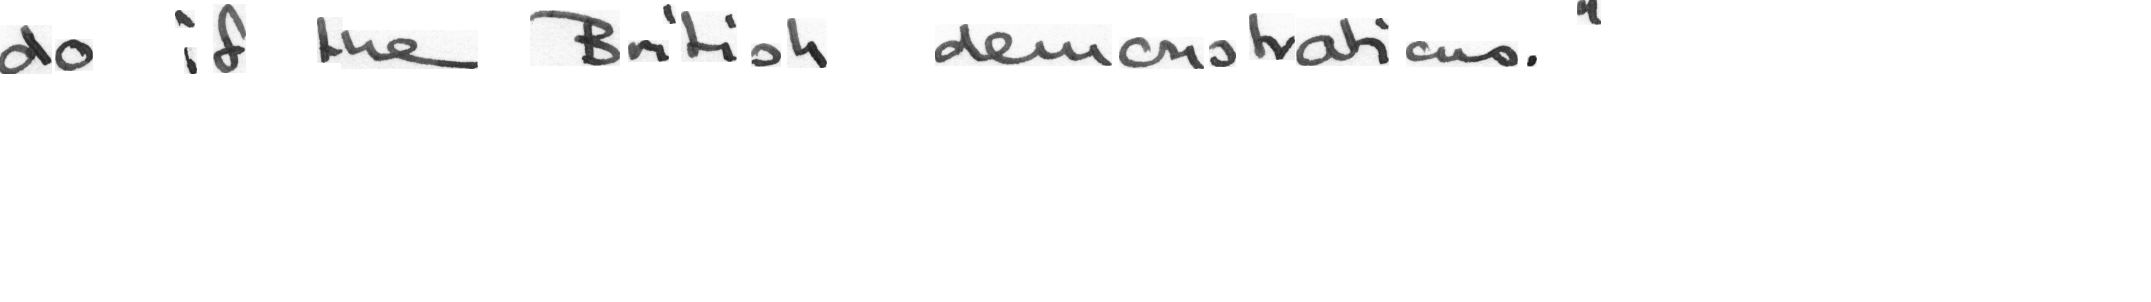 do if the British demonstrations."